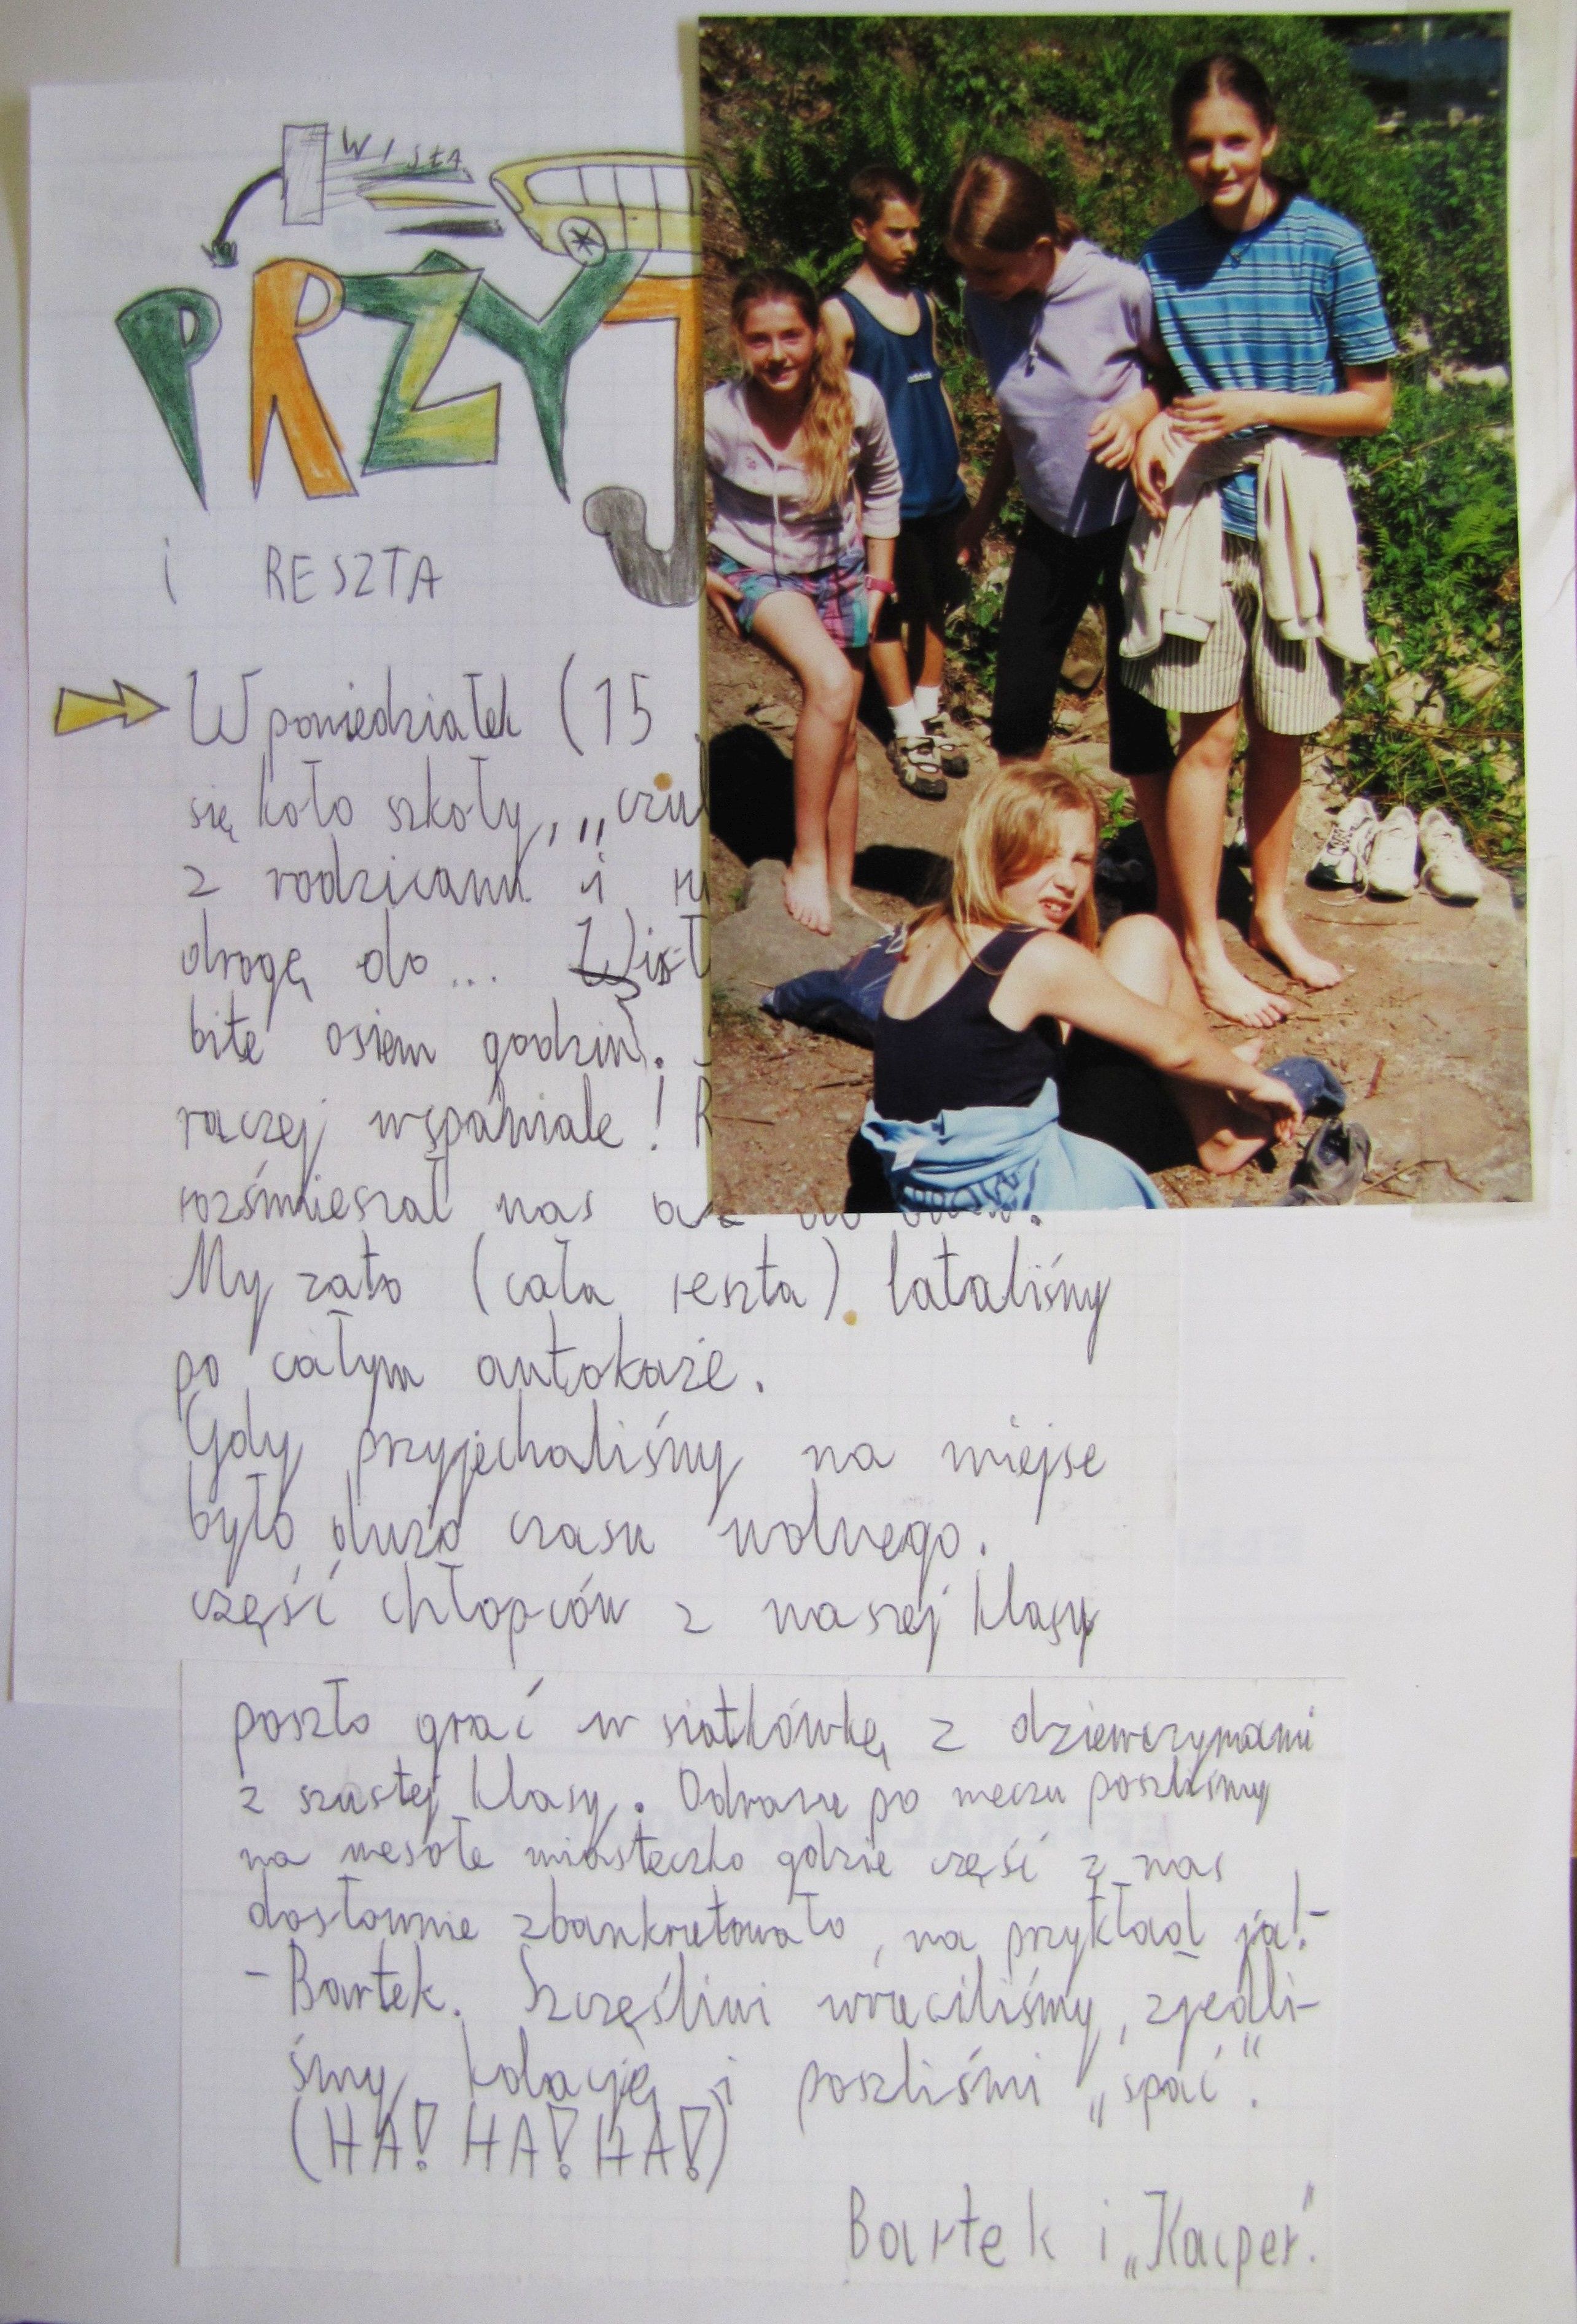 WISŁA
PRZYJ
i RESZTA
W poniedziałek (15
się koło szkoły, „czu
z rodzicami i ru
drogę do... Wisł
bite osiem godzin.
raczej wspaniale! R
rozśmieszał nas
My zato (cała reszta) lataliśmy
po całym autokaże.
Gdy przyjechaliśmy na miejse
było dużo czasu wolnego.
część chłopców z naszej klasy
poszło grać w siatkówkę z dziewczynami
z szustej klasy. Odrazu po meczu poszliśmy
na wesołe miasteczko gdzie część z nas
dosłownie zbankrutowało, na przykład ja!-
- Bartek. Szczęśliwi wruciliśmy, zjedli-
śmy kolację i poszliśmi „spać".
(HA! HA! HA!)
Bartek i „Kacper".
adidas